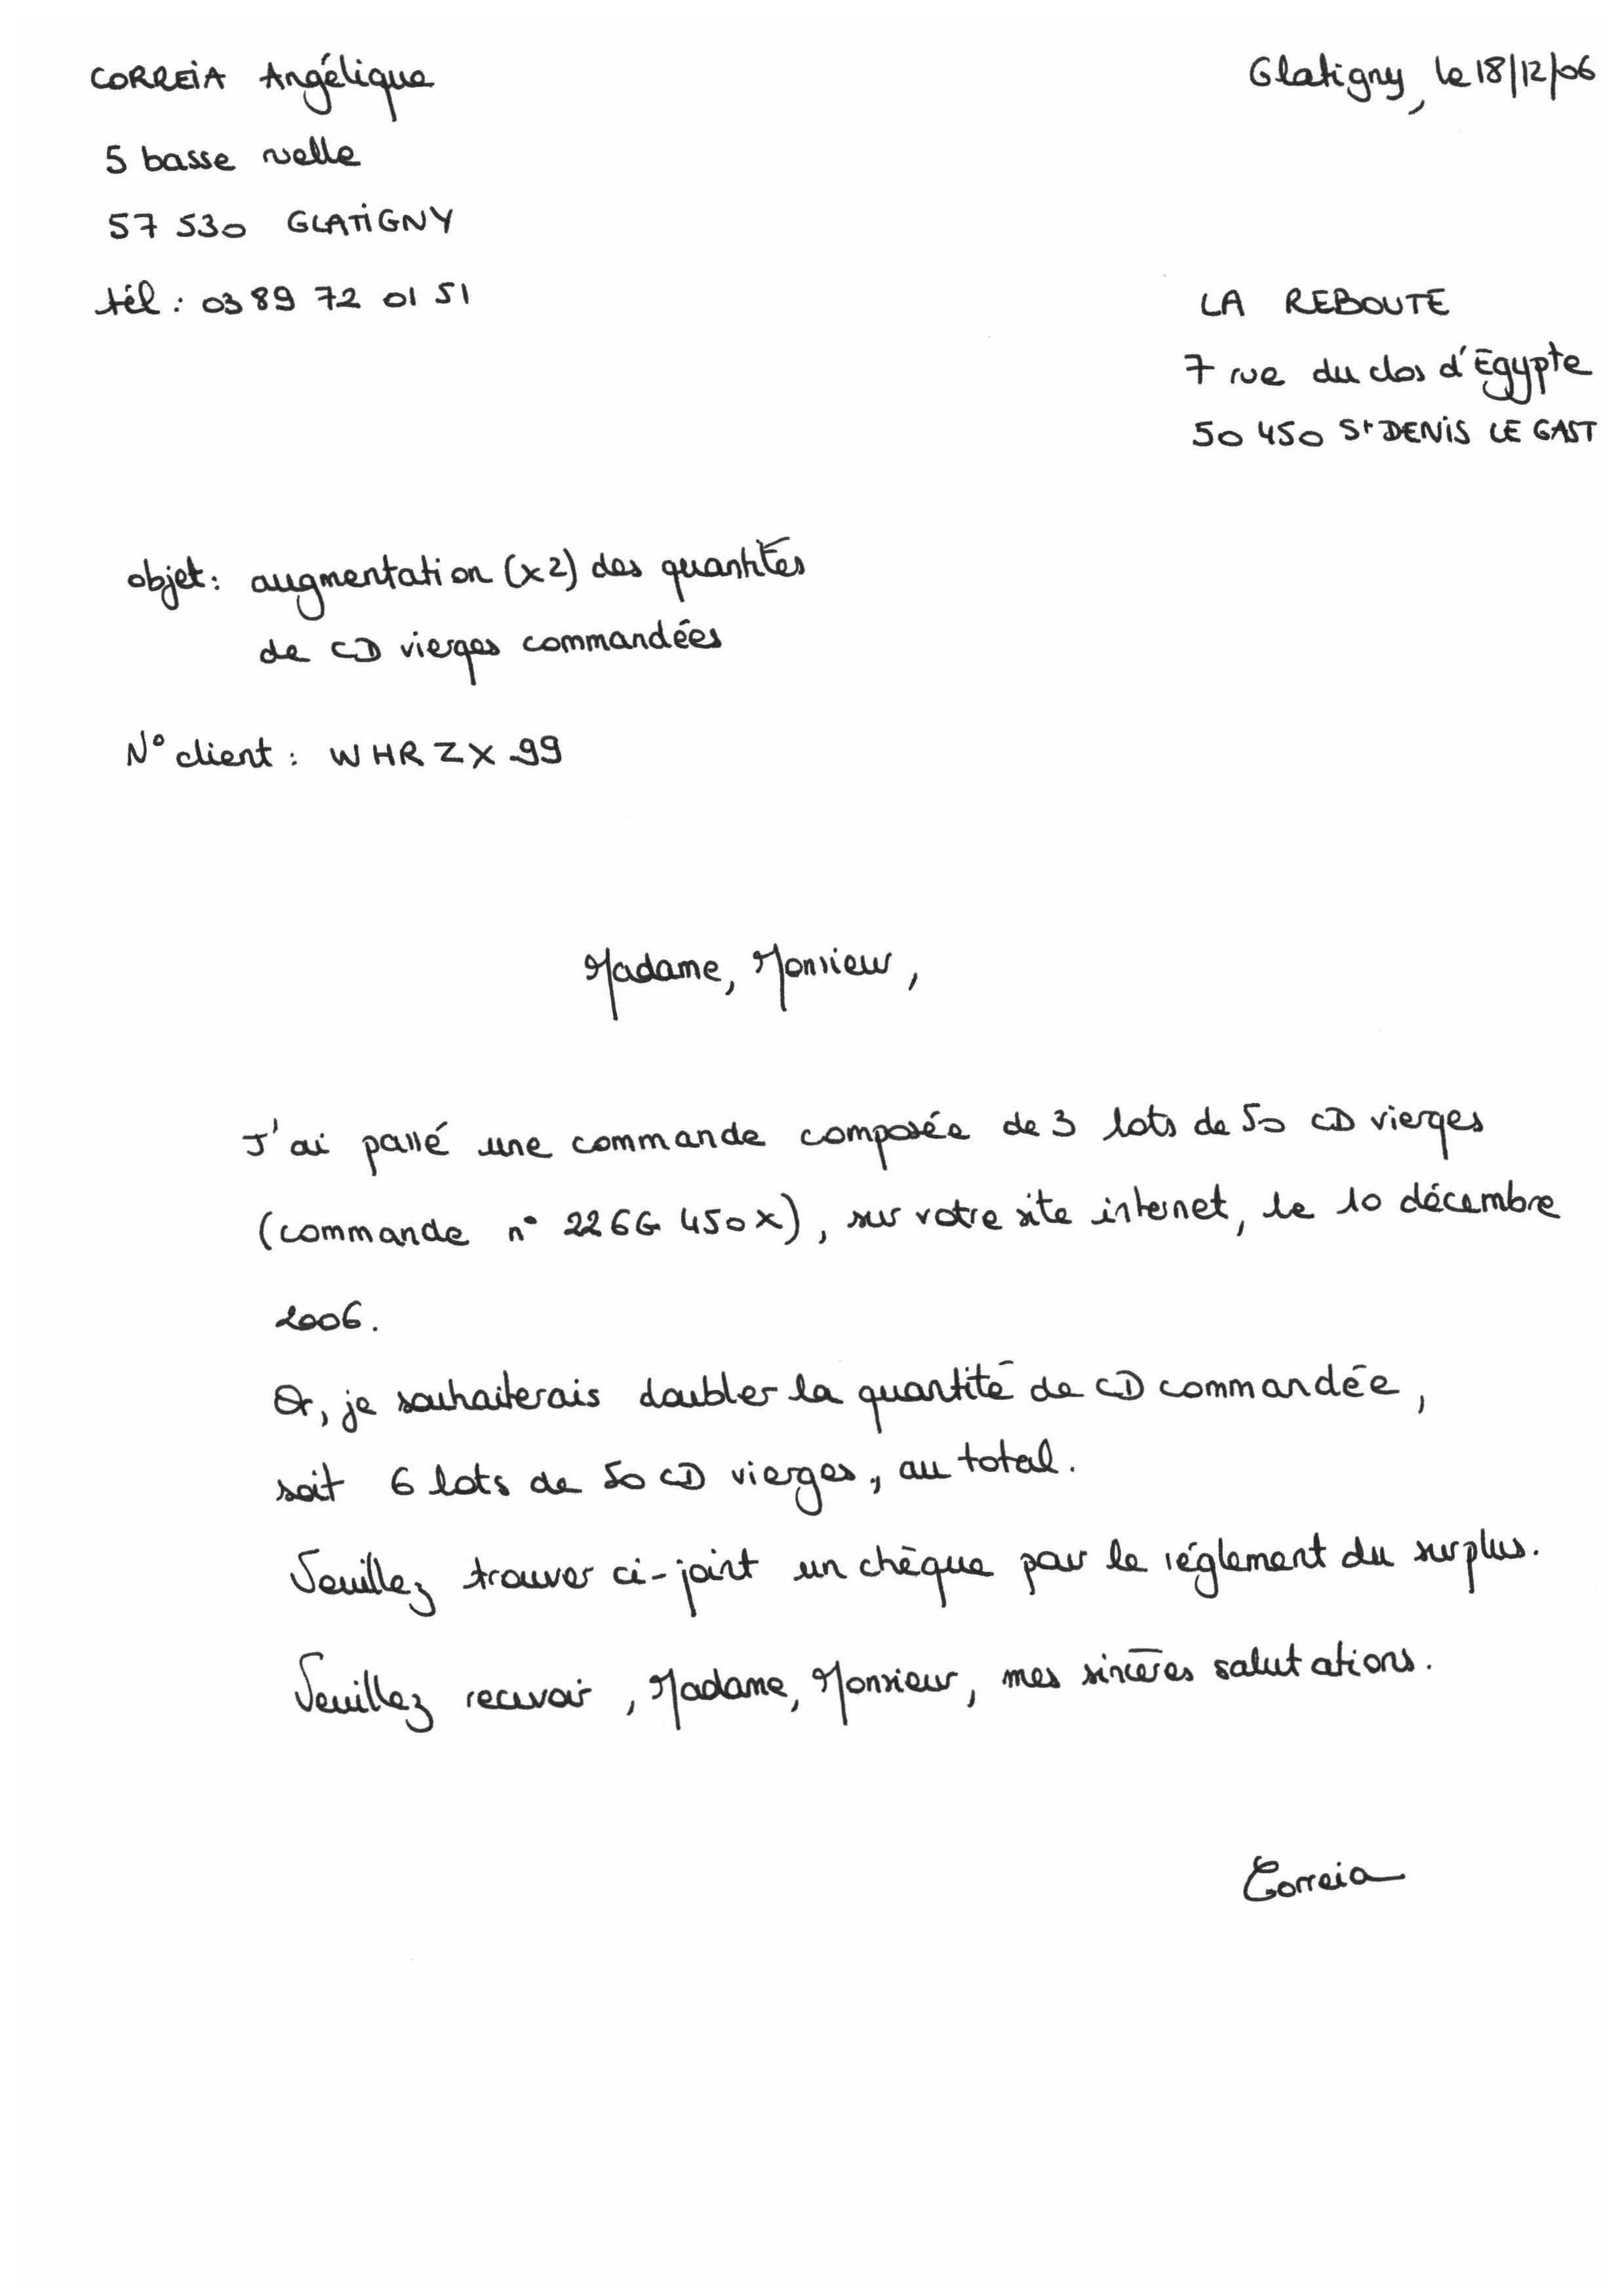 CORREIA Angélique
Glatigny, le 18/12/06
5 basse ruelle
57 530 GLATIGNY
tél : 03 89 72 01 51
LA REBOUTE
7 rue du clos d'Egypte
50 450 St DENIS LE GAST
objet : augmentation (x2) des quantités
de CD vierges commandées
N° client : WHRZX 99
Madame, Monsieur,
J'ai passé une commande composée de 3 lots de 50 CD vierges
(commande n° 226G 450x), sur votre site internet, le 10 décembre
2006.
Or, je souhaiterais doubler la quantité de CD commandée,
soit 6 lots de 50 CD vierges, au total.
Veuillez trouver ci-joint un chèque pour le réglement du surplus.
Veuillez recevoir, Madame, Monsieur, mes sincères salutations.
Correia